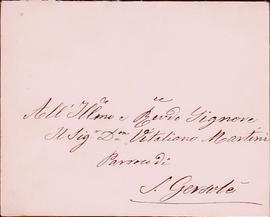 All' Illmo e Revdo Signore
Il Sigr Dn Vitaliano Martini
Parroco di
S. Gersolè